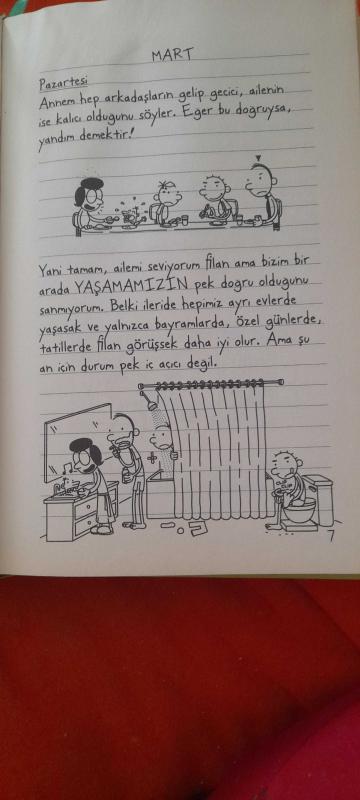 MART
Pazartesi
Annem hep arkadaşların gelip geçici, ailenin
ise kalıcı olduğunu söyler. Eğer bu doğruysa,
yandım demektir!
Yani tamam, ailemi seviyorum filan ama bizim bir
arada YAŞAMAMIZIN pek doğru olduğunu
sanmıyorum. Belki ileride hepimiz ayrı evlerde
yaşasak ve yalnızca bayramlarda, özel günlerde,
tatillerde filan görüşsek daha iyi olur. Ama şu
an için durum pek iç açıcı değil.
7